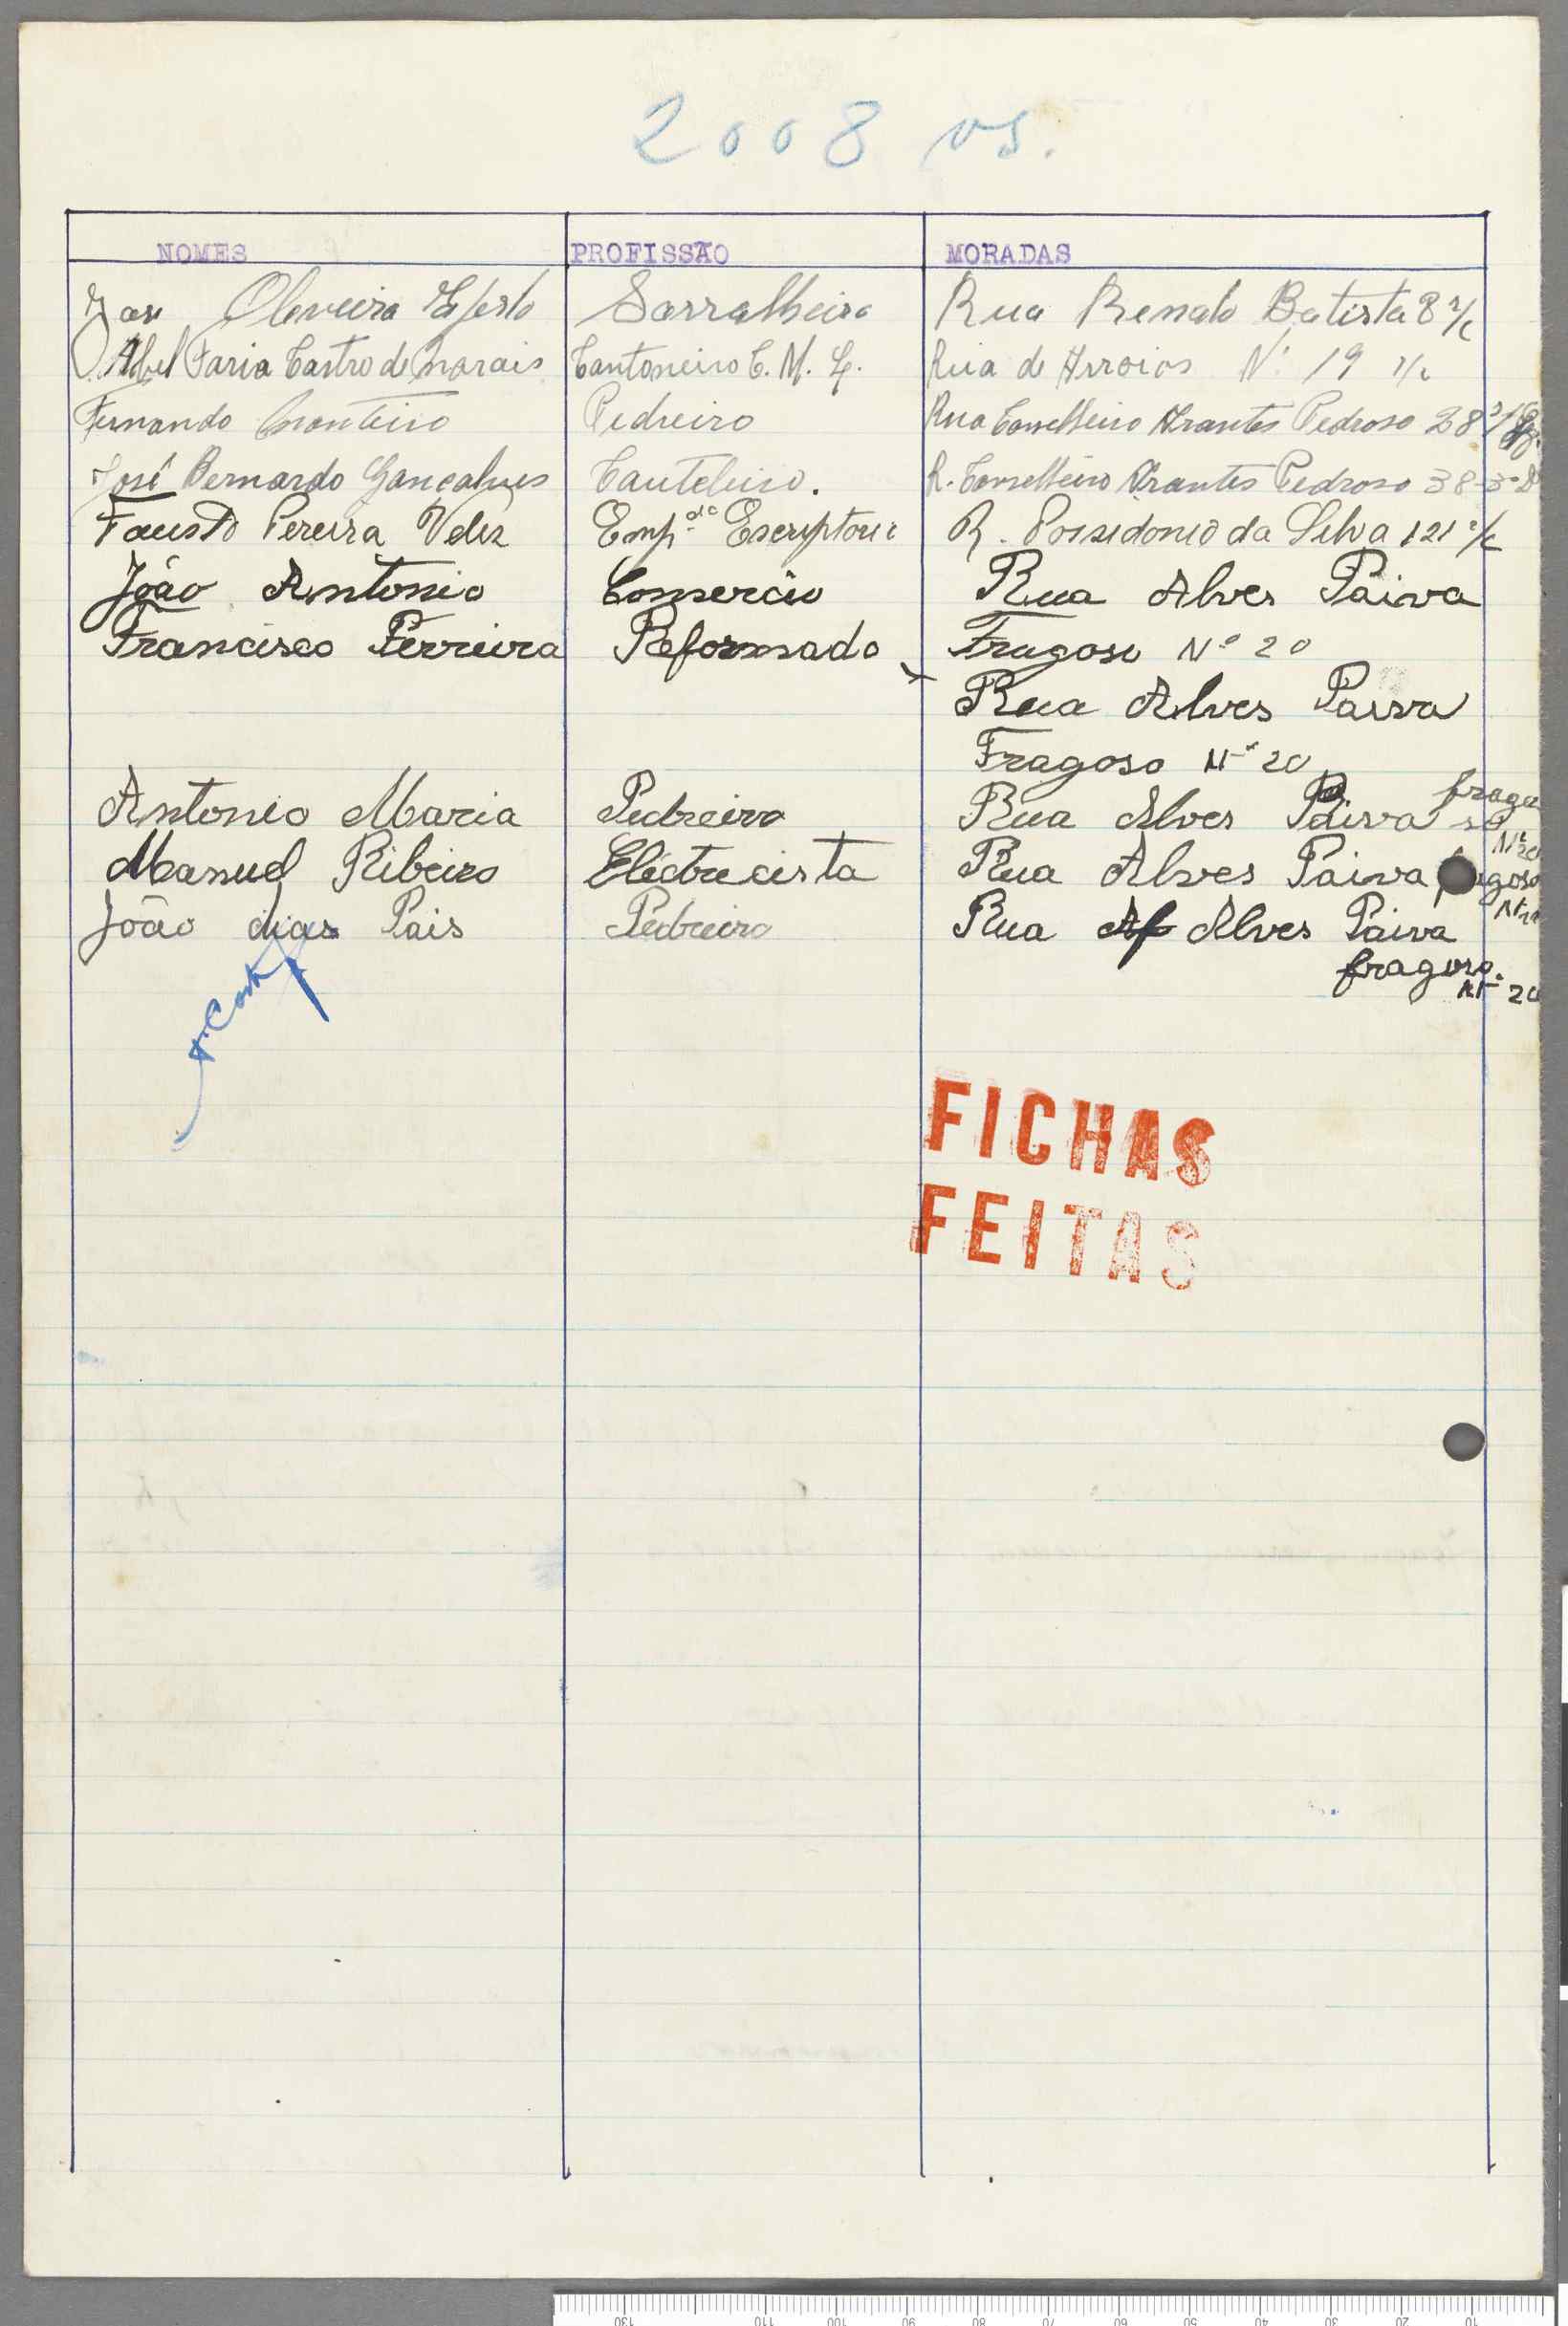 2008 vs.
NOMES PROFISSÃO MORADAS
José Oliveira Sarralheiro Rua Renato Batista 8 r/c
Abel Faria Castro de Morais Cantoneiro C. M. L. Rua de Arroios Nº 19 r/c
Fernando Monteiro Pedreiro Rua Conselheiro Arantes Pedroso 38
José Bernardo Gonçalves Cauteleiro. R. Conselheiro Arantes Pedroso 38-3º D
Fausto Pereira Velez Empdo Escriptorio R. Possidonio da Silva 121 r/c
João Antonio Comercio Rua Alves Paiva
Francisco Ferreira Reformado Fragoso Nº 20
Rua Alves Paiva
Fragoso Nº 20
Antonio Maria Pedreiro Rua Alves Paiva frago
so Nº 20
Manuel Ribeiro Eléctrecista Rua Alves Paiva
João dias Pais Pedreiro Rua Alves Paiva
fragoso.
Nº 20
FICHAS
FEITAS